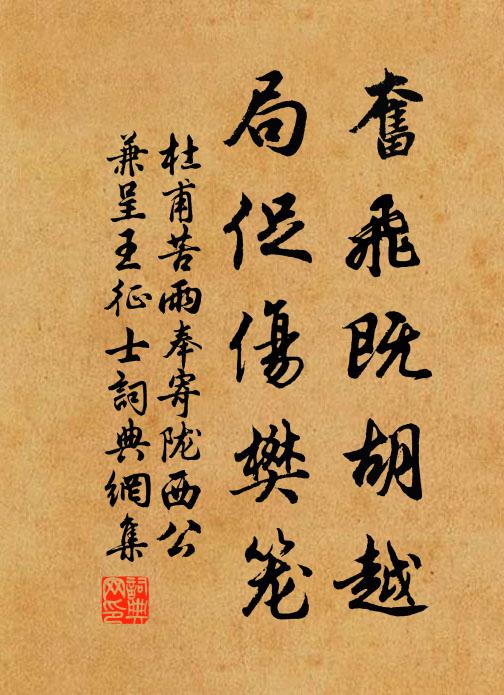 奮飛既胡越
局促傷樊笼
杜甫苦雨奉寄陇西公
兼呈王征士詞典網集
詞典网印